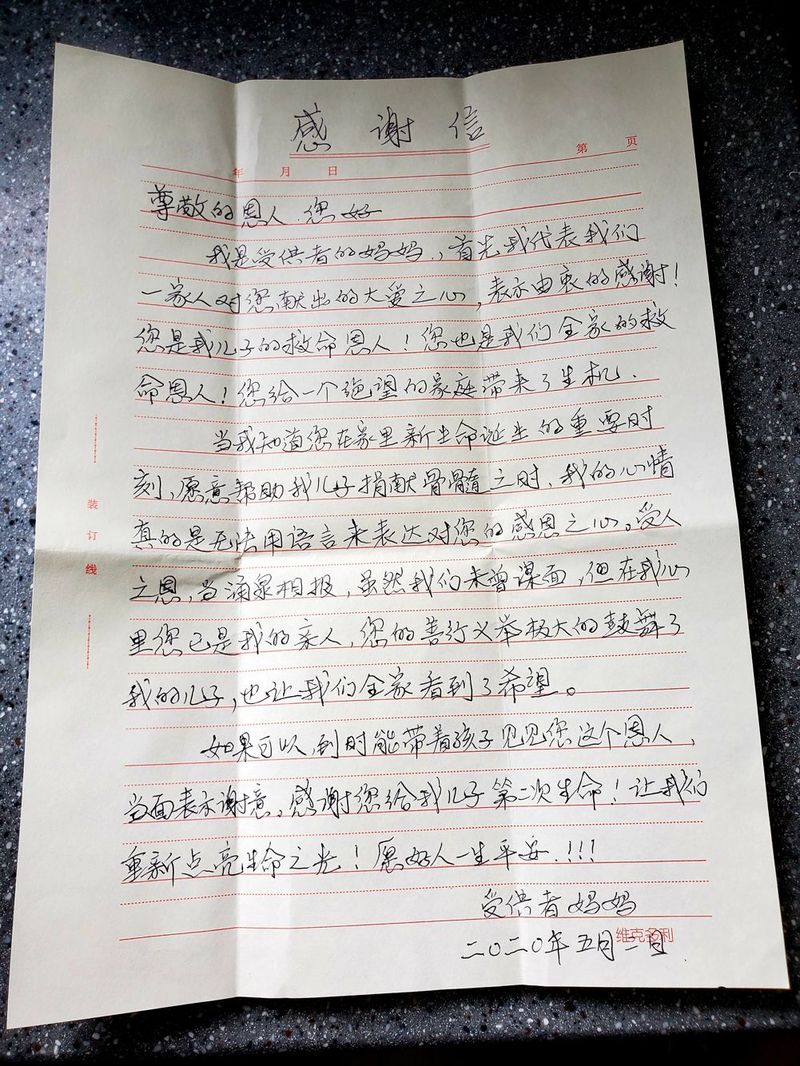 感谢信
年 月 日 第 页
尊敬的恩人 您好
我是受供者的妈妈,首先我代表我们
一家人对您献出的大爱之心,表示由衷的感谢!
您是我儿子的救命恩人!您也是我们全家的救
命恩人!您给一个绝望的家庭带来了生机.
当我知道您在家里新生命诞生的重要时
刻,愿意帮助我儿子捐献骨髓之时,我的心情
真的是无法用语言来表达对您的感恩之心。受人
之恩,当涌泉相报,虽然我们未曾谋面,但在我心
里您已是我的亲人,您的善行义举极大的鼓舞了
我的儿子,也让我们全家看到了希望。
如果可以,到时能带着孩子见见您这个恩人,
当面表示谢意,感谢您给我儿子第二次生命!让我们
重新点亮生命之光!愿好人一生平安.!!!
受供者妈妈
二〇二〇年五月二日
维克多利
装订线